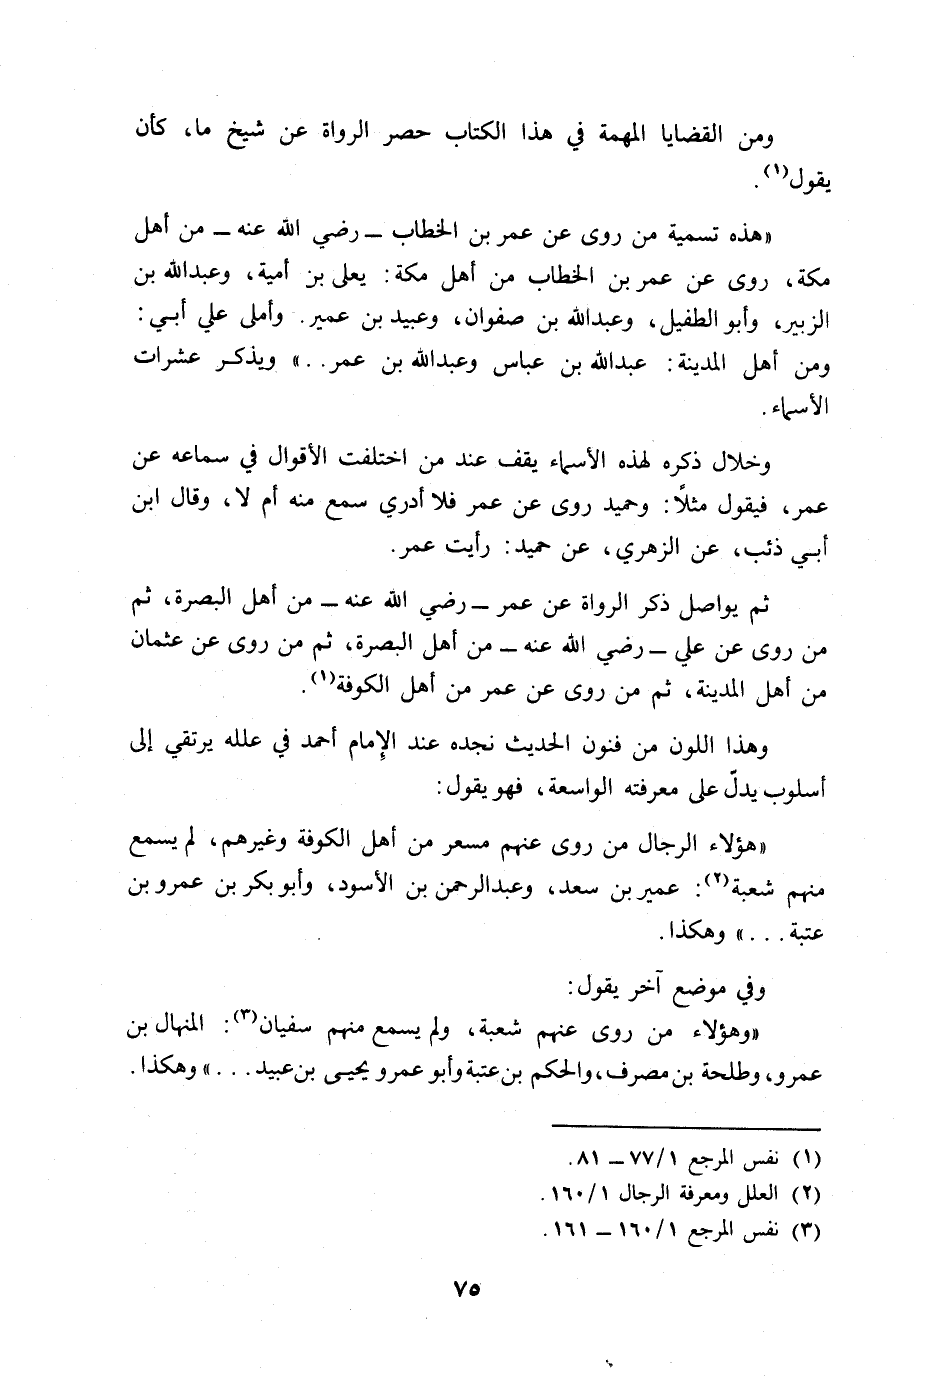 ومن القضايا المهمة في هذا الكتاب حصر الرواة عن شيخ ما، كأن
يقول(١).
«هذه تسمية من روى عن عمر بن الخطاب ــ رضي الله عنه ــ من أهل
مكة، روى عن عمر بن الخطاب من أهل مكة: يعلى بن أمية، وعبدالله بن
الزبير، وأبو الطفيل، وعبدالله بن صفوان، وعبيد بن عمير. وأملى علي أبي:
ومن أهل المدينة: عبدالله بن عباس وعبدالله بن عمر. . .» ويذكر عشرات
الأسماء.
وخلال ذكره لهذه الأسماء يقف عند من اختلفت الأقوال في سماعه عن
عمر، فيقول مثلًا: وحميد روى عن عمر فلا أدري سمع منه أم لا، وقال ابن
أبي ذئب، عن الزهري، عن حميد: رأيت عمر.
ثم يواصل ذكر الرواة عن عمر ــ رضي الله عنه ــ من أهل البصرة، ثم
من روى عن علي ــ رضي الله عنه ــ من أهل البصرة، ثم من روى عن عثمان
من أهل المدينة، ثم من روى عن عمر من أهل الكوفة(١).
وهذا اللون من فنون الحديث نجده عند الإمام أحمد في علله يرتقي إلى
أسلوب يدلّ على معرفته الواسعة، فهو يقول:
«هؤلاء الرجال من روى عنهم مسعر من أهل الكوفة وغيرهم، لم يسمع
منهم شعبة(٢): عمير بن سعد، وعبدالرحمن بن الأسود، وأبو بكر بن عمرو بن
عتبة. . .» وهكذا.
وفي موضع آخر يقول:
«وهؤلاء من روى عنهم شعبة، ولم يسمع منهم سفيان(٣): المنهال بن
عمرو، وطلحة بن مصرف، والحكم بن عتبة وأبو عمرو يحيى بن عبيد. . .» وهكذا.
(١) نفس المرجع ١/٧٧ ــ ٨١.
(٢) العلل ومعرفة الرجال ١/١٦٠.
(٣) نفس المرجع ١/١٦٠ ــ ١٦١.
٧٥